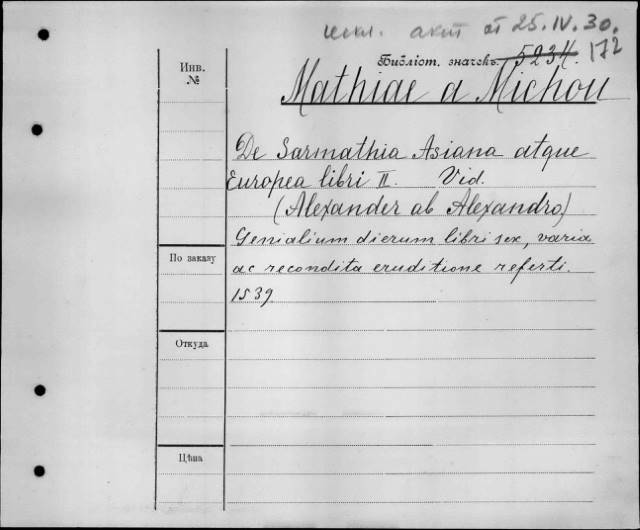 искл. акт от 25.IV.30.
Библіот. значекъ 5234. 172
Инв.
№
Mathiae a Michou
De Sarmathia Asiana atque
Europea libri II. Vid.
(Alexander ab Alexandro)
Genialium dierum libri sex, varia
По заказу
ac recondita eruditione referti.
1539
Откуда
Цѣна